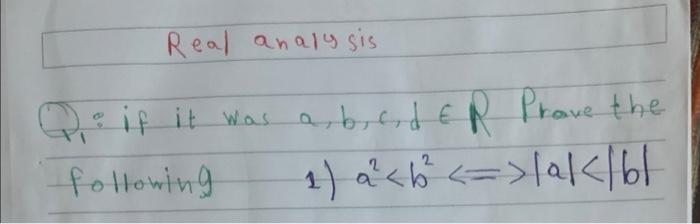 Real analysis
Q₁: if it was a, b, c, d ∈ R Prove the
following 1) a² < b² <=> |a| < |b|